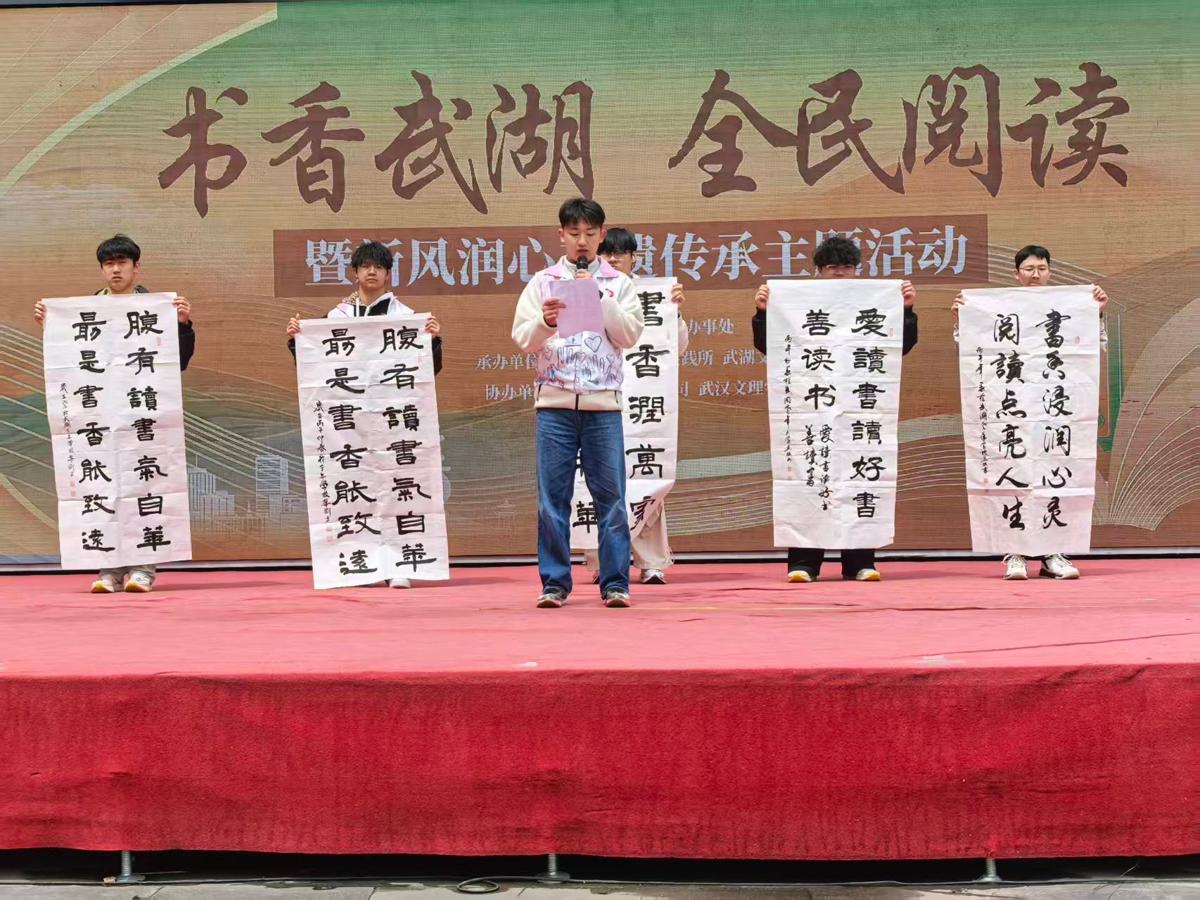 书香武湖 全民阅读
暨新风润心 遗传承主题活动
办事处
承办单位 践所 武湖
协办单 司 武汉文理
腹有讀書氣自華
最是書香能致遠
腹有讀書氣自華
最是書香能致遠
書香潤萬家
華
愛讀書讀好書
善读书
愛讀書讀好书
善讀書
書香浸润心灵
阅讀点亮人生